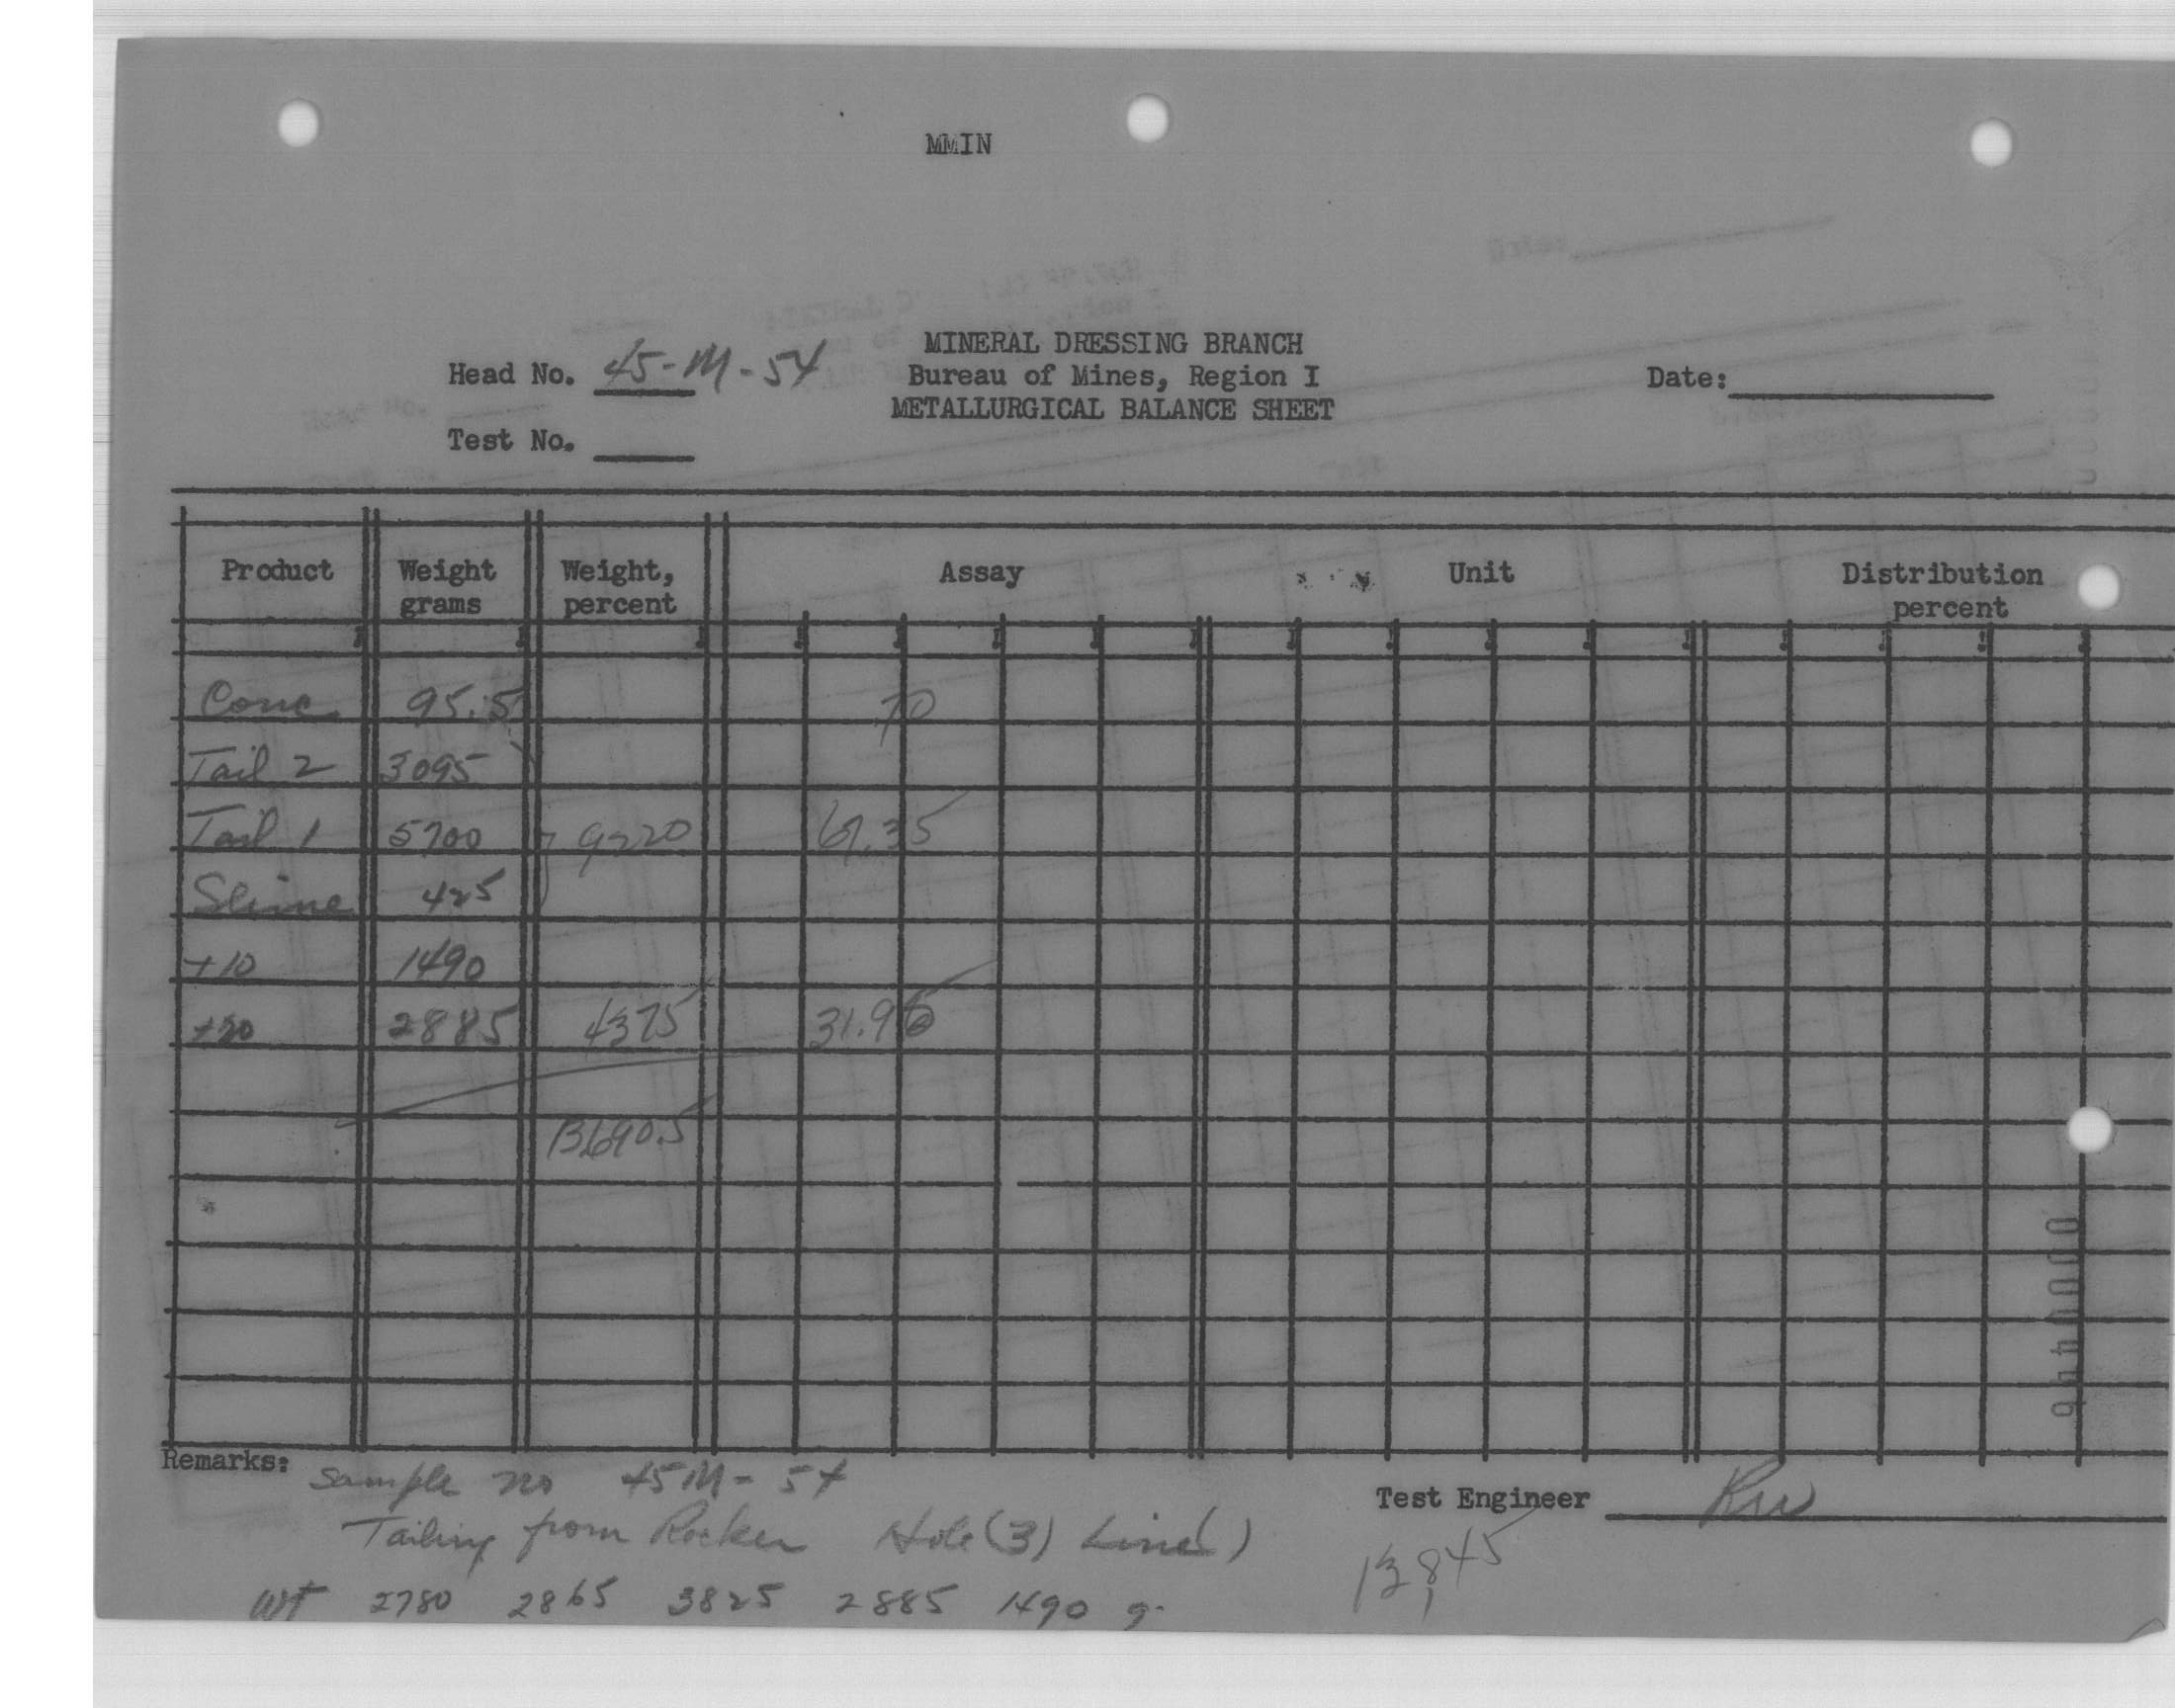 MMIN
MINERAL DRESSING BRANCH
Head No. 45-M-54 Bureau of Mines, Region I Date:
METALLURGICAL BALANCE SHEET
Test No.
Product Weight grams Weight, percent Assay Unit Distribution percent
Conc. 95.5 .70
Tail 2 3095
Tail 1 5700 9220 67.35
Slime 425
+10 1490
+20 2885 4375 31.96
13690.5
Remarks: Sample no 45M-54
Test Engineer RW
Tailing from Rocker Hole (3) Line( )
13,845
WT 2780 2865 3825 2885 1490 g.
0000446